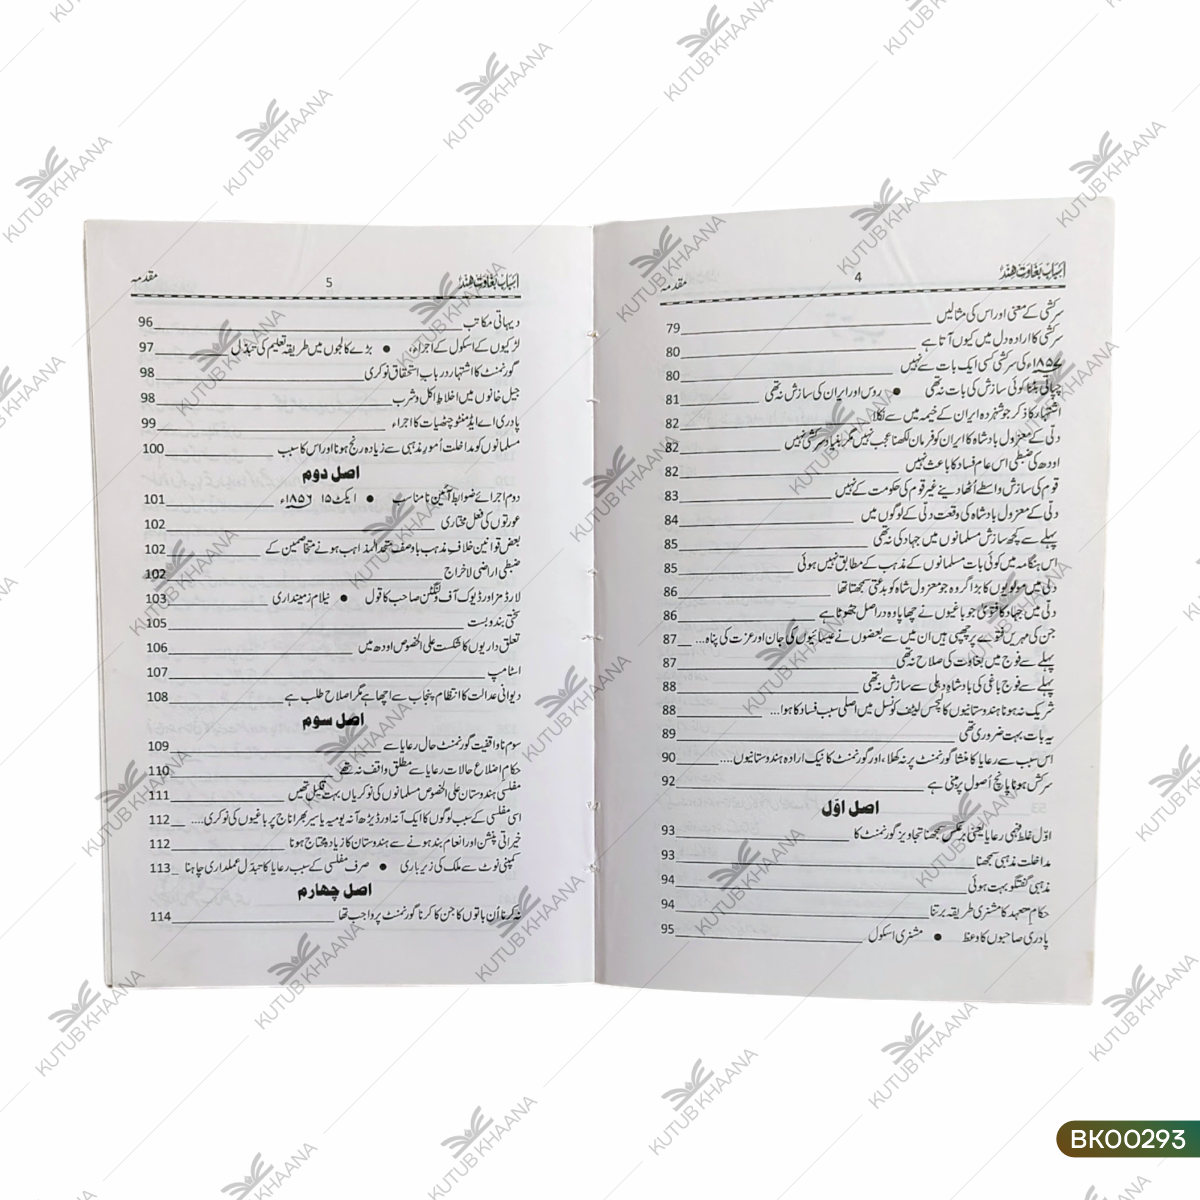 اسباب بغاوت ہند 4 مقدمہ
سرکشی کے معنی اور اس کی مثالیں 79
سرکشی کا ارادہ دل میں کیوں آتا ہے 80
۱۸۵۷ء کی سرکشی کسی ایک بات سے نہیں 80
چپاتی بٹنا کوئی سازش کی بات نہ تھی ● روس اور ایران کی سازش نہ تھی 81
اشتہار کا ذکر جو شہزدہ ایران کے خیمہ میں سے نکلا 82
دلّی کے معزول بادشاہ کا ایران کو فرمان لکھنا عجب نہیں مگر بنیاد سرکشی نہیں 82
اودھ کی ضبطی اس عام فساد کا باعث نہیں 82
قوم کی سازش واسطے اُٹھا دینے غیر قوم کی حکومت کے نہیں 83
دلّی کے معزول بادشاہ کی وقعت دلّی کے لوگوں میں 84
پہلے سے کچھ سازش مسلمانوں میں جہاد کی نہ تھی 85
اس ہنگامہ میں کوئی بات مسلمانوں کے مذہب کے مطابق نہیں ہوئی 85
دلّی میں مولویوں کا بڑا گروہ جو معزول شاہ کو بدعتی سمجھتا تھا 86
دلّی میں جہاد کا فتویٰ جو باغیوں نے چھاپا وہ دراصل جھوٹا ہے 86
جن کی مہریں فتوے پر چھپی ہیں ان میں سے بعضوں نے عیسائیوں کی جان اور عزت کی پناہ... 87
پہلے سے فوج میں بغاوت کی صلاح نہ تھی 87
پہلے سے فوج باغی کی بادشاہِ دہلی سے سازش نہ تھی 88
شریک نہ ہونا ہندوستانیوں کا لیجس لیٹیف کونسل میں اصلی سبب فساد کا ہوا... 88
یہ بات بہت ضروری تھی 89
اس سبب سے رعایا کا منشا گورنمنٹ پر نہ کھلا، اور گورنمنٹ کا نیک ارادہ ہندوستانیوں.... 90
سرکش ہونا پانچ اُصول پر مبنی ہے 92
اصل اوّل
اوّل غلط فہمی رعایا یعنی برعکس سمجھنا تجاویز گورنمنٹ کا 93
مداخلت مذہبی سمجھنا 93
مذہبی گفتگو بہت ہوئی 94
حکام متعہد کا مشنری طریقہ برتنا 94
پادری صاحبوں کا وعظ ● مشنری اسکول 95
اسباب بغاوت ہند 5 مقدمہ
دیہاتی مکاتب 96
لڑکیوں کے اسکول کے اجراء، ● بڑے کالجوں میں طریقہ تعلیم کی تبدّلی 97
گورنمنٹ کا اشتہار در بابِ استحقاق نوکری 98
جیل خانوں میں اختلاط اکل و شرب 98
پادری اے ایڈمنڈ چٹھیات کا اجراء 99
مسلمانوں کو مداخلت اُمور مذہبی سے زیادہ رنج ہونا اور اس کا سبب 100
اصل دوم
دوم اجرائے ضوابط آئین نامناسب ● ایکٹ ۱۵ ۱۸۵۶ء 101
عورتوں کی فعل مختاری 102
بعض قوانین خلافِ مذہب باوصف متحد المذاہب ہونے متخاصمین کے 102
ضبطی اراضی لاخراج 102
لارڈ مزاور ڈیوک آف ولنگٹن صاحب کا قول ● نیلام زمینداری 103
سختی بندوبست 105
تعلق داریوں کا شکست علی الخصوص اودھ میں 106
اسٹامپ 107
دیوانی عدالت کا انتظام پنجاب سے اچھا ہے مگر اصلاح طلب ہے 108
اصل سوم
سوم ناواقفیت گورنمنٹ حال رعایا سے 109
حکام اضلاع حالات رعایا سے مطلق واقف نہ تھے 110
مفلسی ہندوستان علی الخصوص مسلمانوں کی نوکریاں بہت قلیل تھیں 111
اسی مفلسی کے سبب لوگوں کا ایک آنہ اور ڈیڑھ آنہ یومیہ یا سیر بھر اناج پر باغیوں کی نوکری.... 112
خیراتی پنشن اور انعام بند ہونے سے ہندوستان کا زیادہ محتاج ہونا 112
کمپنی نوٹ سے ملک کی زیر باری ● صرف مفلسی کے سبب رعایا کا تبدّل عملداری چاہنا 113
اصل چہارم
نہ کرنا اُن باتوں کا جن کا کرنا گورنمنٹ پر واجب تھا 114
KUTUB KHAANA
BK00293